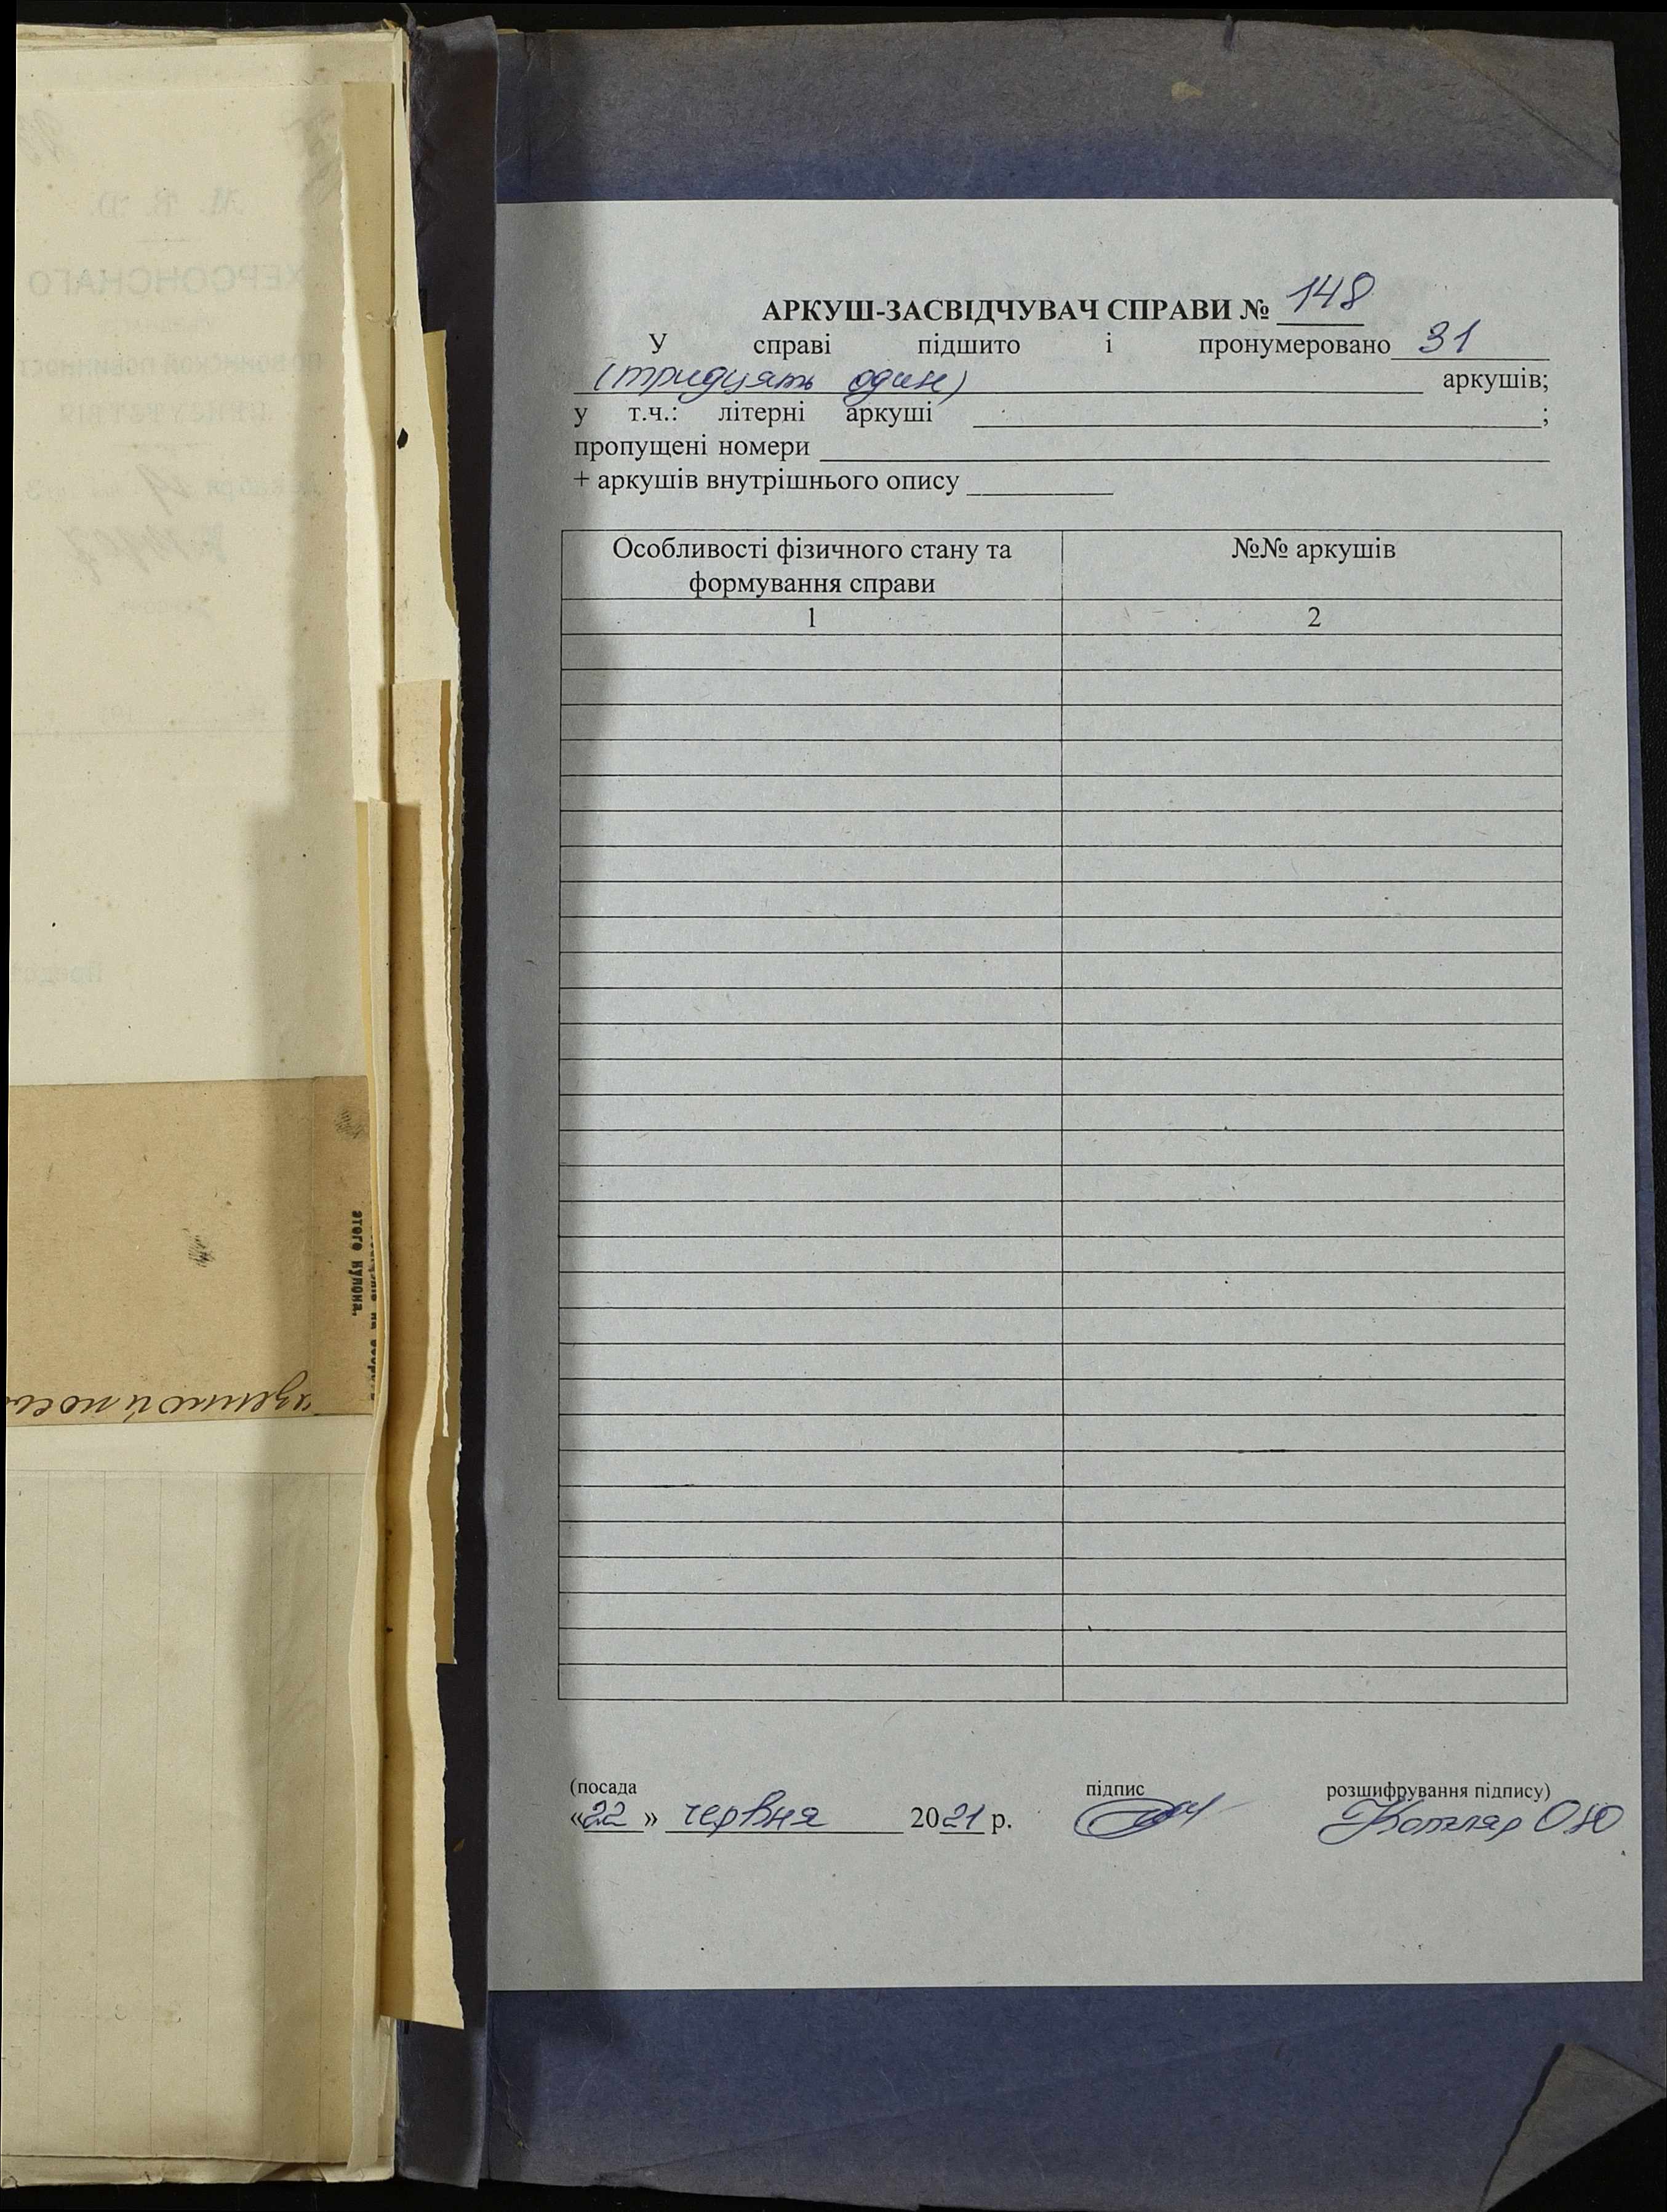 АРКУШ-ЗАСВІДЧУВАЧ СПРАВИ № 148
У справі підшито і пронумеровано 31
(тридцять один) аркушів;
у т.ч.: літерні аркуші ;
пропущені номери
+ аркушів внутрішнього опису
Особливості фізичного стану та формування справи
№№ аркушів
1
2
(посада
підпис
розшифрування підпису)
«22» червня 2021 р.
Котляр О Ю
М. В. Д.
ХЕРСОНСКАГО
ПО ВОИНСКОЙ ПОВИННОСТ
ПРИСУТСТВІЯ
Декабря 19
этого купона.